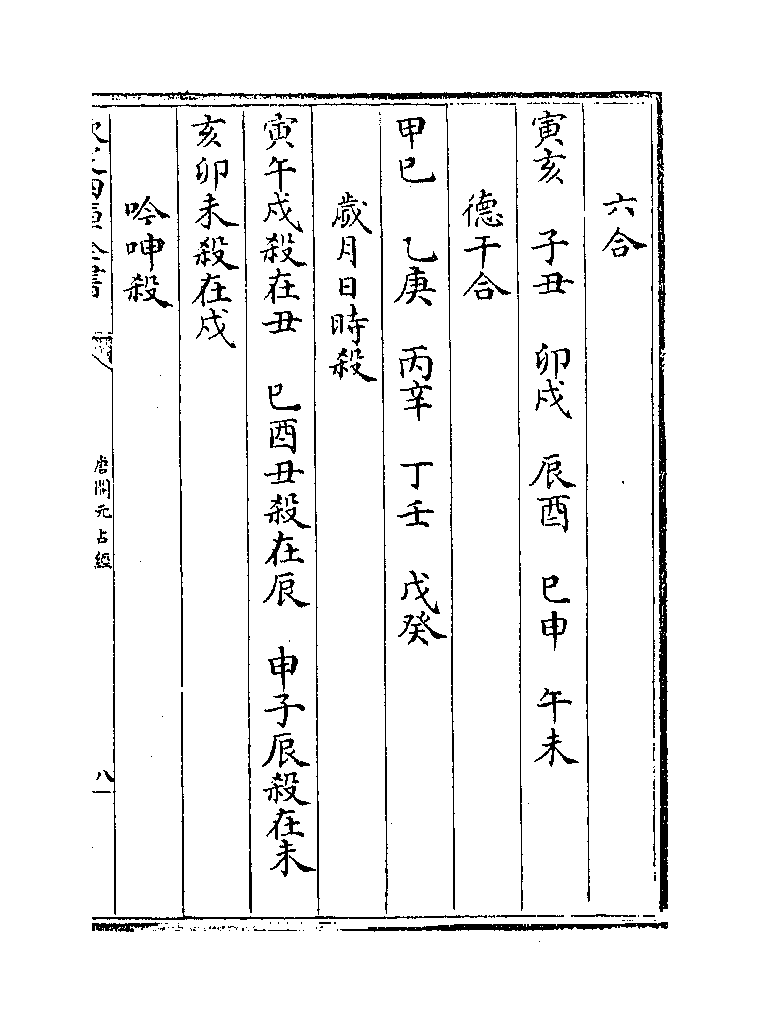 六合
寅亥　子丑　卯戌　辰酉　巳申　午未
德干合
甲巳　乙庚　丙辛　丁壬　戊癸
歲月日時殺
寅午戌殺在丑　巳酉丑殺在辰　申子辰殺在未
亥卯未殺在戌
吟呻殺
唐開元占經
八